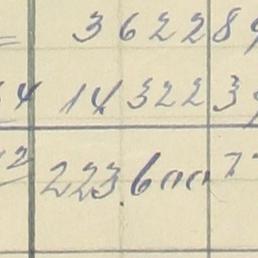 = 362289
4 14322 39
2 223600 77